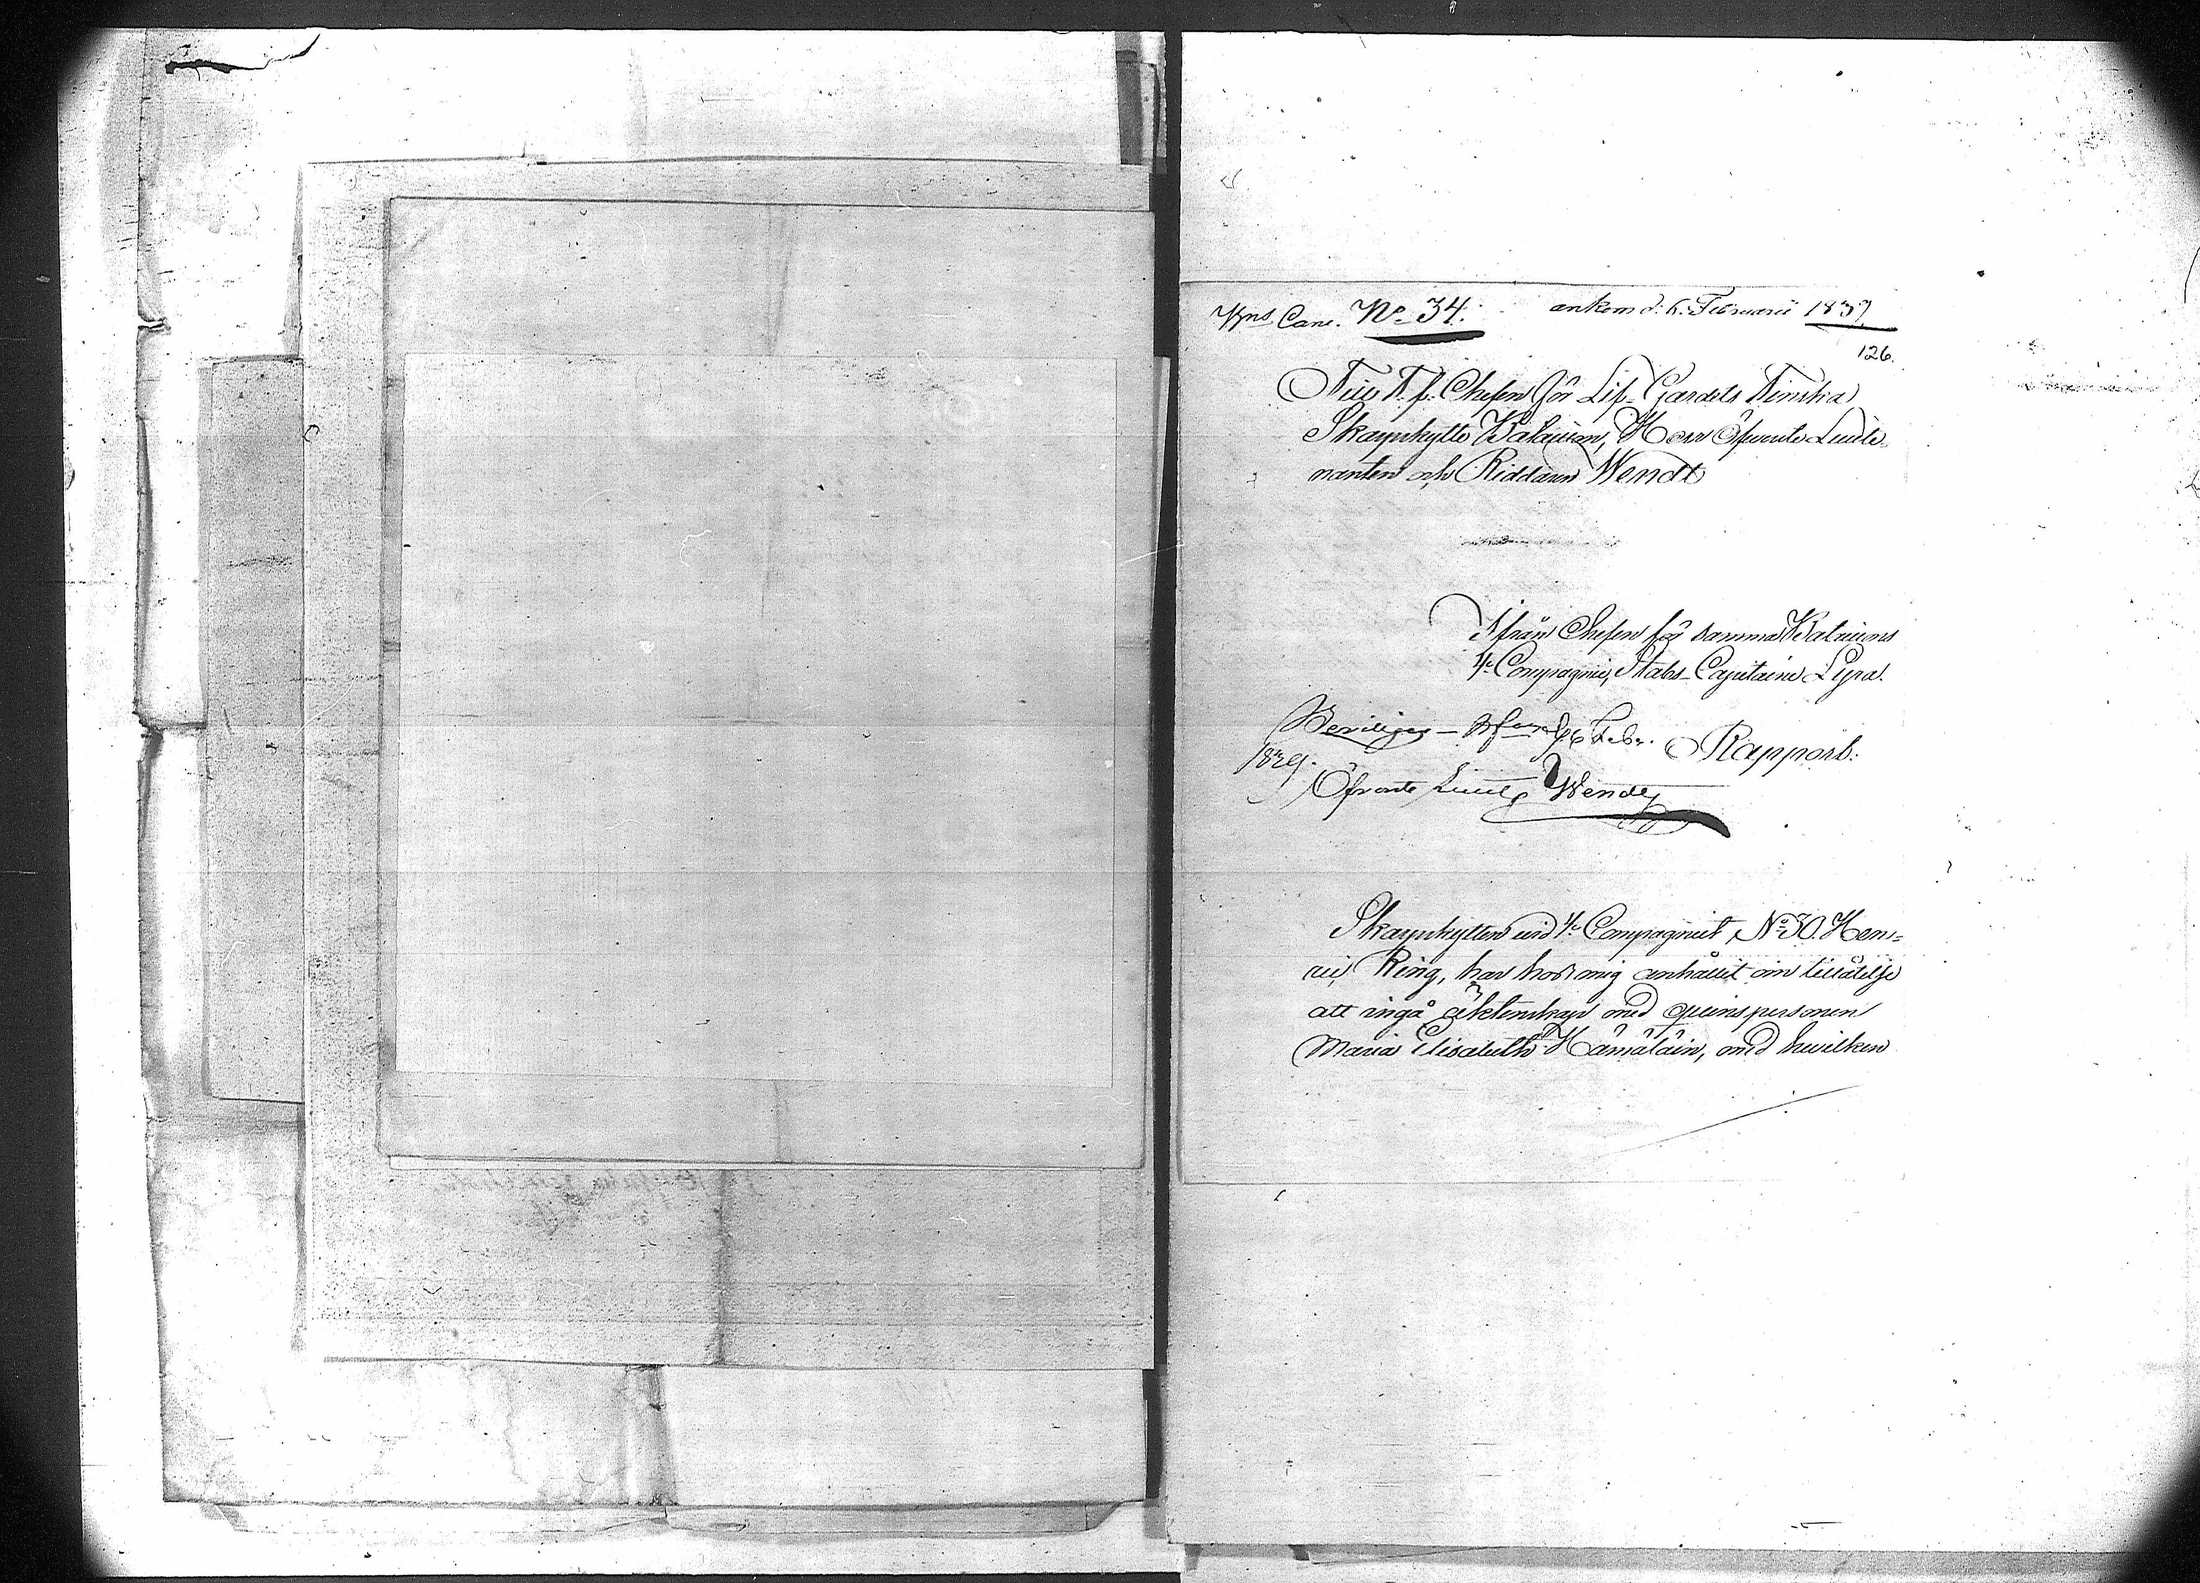 Kjns Canc. No 34. ankom d: 6. Februarii 1839
126.
Till T. f. Chefen för Lif-Gardets Finska
Skarpskytte Bataillon, Herr Öfverste Lieute-
nanten och Riddaren Wendt
Ifrån Chefen för samma Bataillons
4e Compagnie, Stabs-Capitaine Lyra.
Beviljas — d 6 Febr.
1839.
Rapport:
Öfverste Lieut Wendt
Skarpskytten vid 4e Compagniet, No 30. Hen-
ric Ring, har hos mig anhållit om tillåtelse
att ingå äktenskap med qvinspersonen
Maria Elisabeth Hämäläin, med hvilken